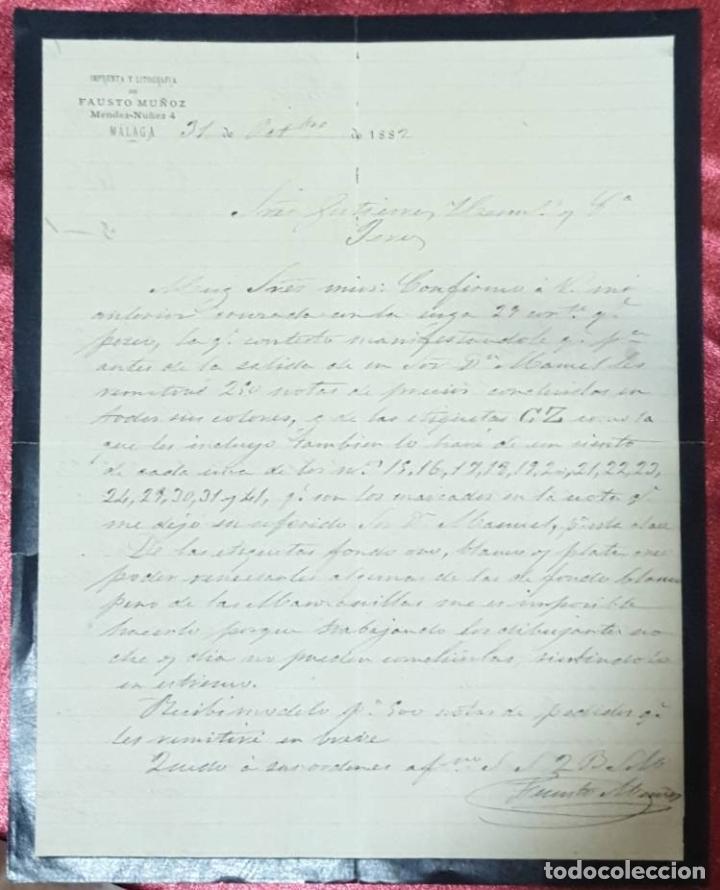 IMPRENTA Y LITOGRAFIA
DE
FAUSTO MUÑOZ
Mendez-Nuñez 4
MÁLAGA
31 de Octbre de 1882
Sres Gutierrez Herms. y Ca
Jerez
Muy Sres mios: Confirmo á V. mi
anterior cruzada con la suya 29 corte. q.
poseo, la q. contesto manifestandole q. pa
antes de la salida de su Sor Dn Manuel les
remitiré 250 notas de precios concluidas en
todos sus colores, y de las etiquetas CZ como la
que les incluyo tambien lo haré de un ciento
de cada una de los nos 15, 16, 17, 18, 19, 20, 21, 22, 23,
24, 29, 30, 31 y 41, q. son los marcados en la nota q.
me dejó su referido Sor Dn Manuel, clase
De las etiquetas fondo oro, blanco y plata, creo
poder remesarles algunas de las de fondo blanco
pero de las Manzanillas me es imposible
hacerlo porque trabajando los dibujantes no
che y dia no pueden concluirlas, sintiendolo
en estremo.
Recibi modelo pa 500 notas de pedidos q.
les remitiré en breve
Quedo á sus ordenes afmo S. S. Q B S M
Fausto Muñoz
todocoleccion
todocoleccion.net